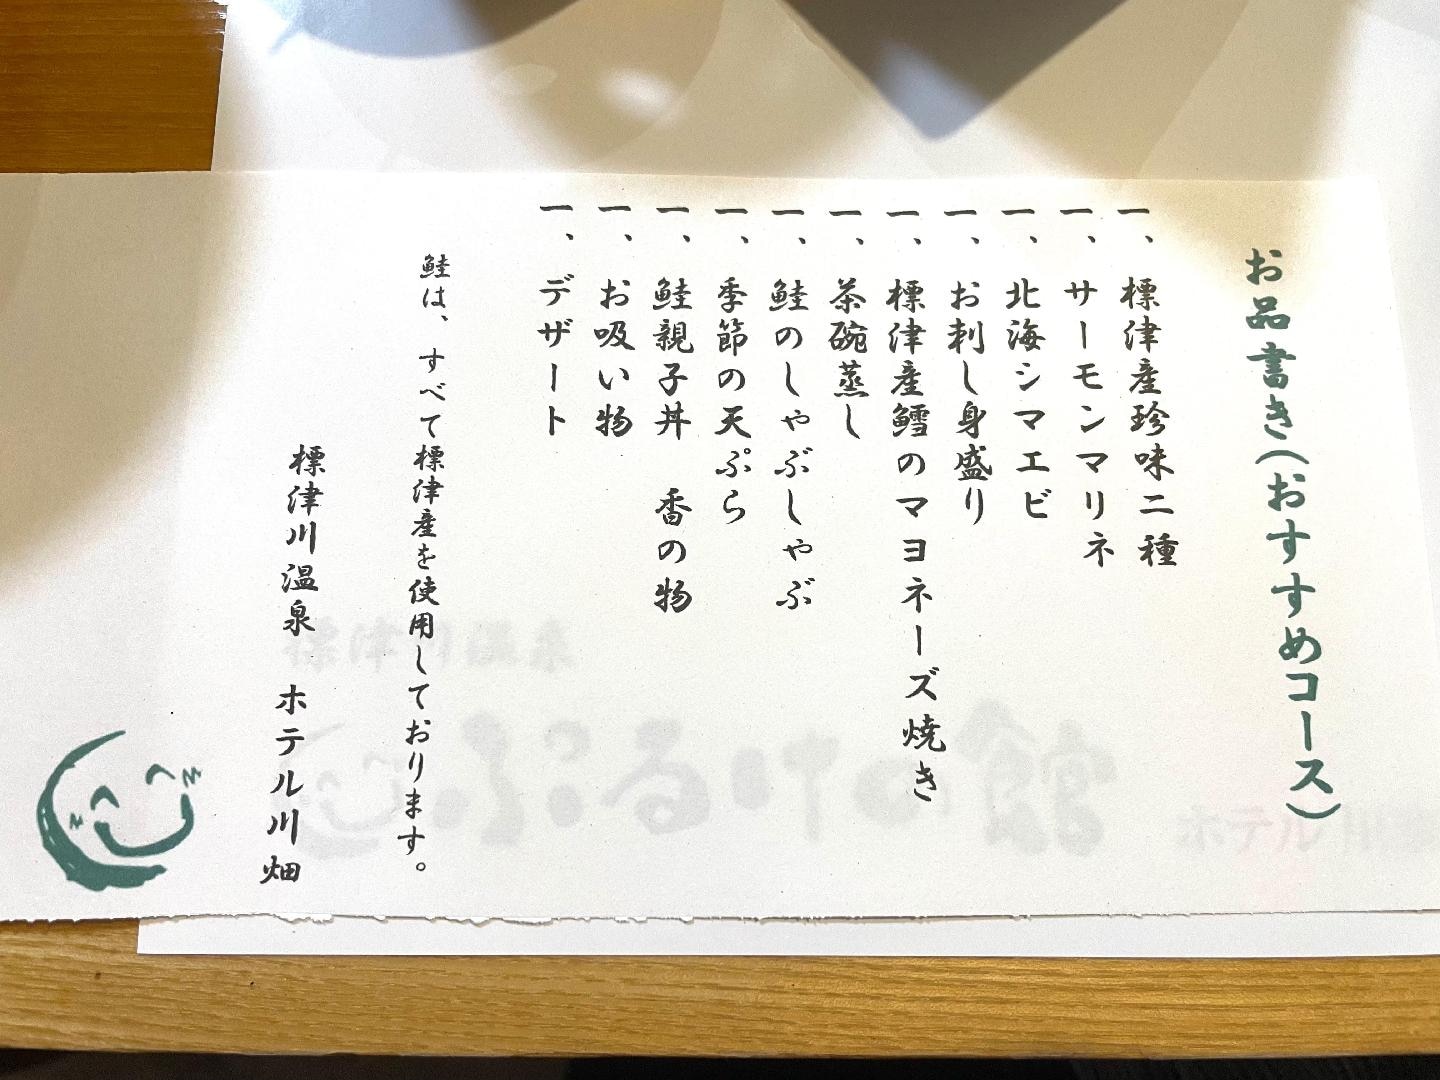 お品書き(おすすめコース)
一、標津産珍味二種
一、サーモンマリネ
一、北海シマエビ
一、お刺し身盛り
一、標津産鱈のマヨネーズ焼き
一、茶碗蒸し
一、鮭のしゃぶしゃぶ
一、季節の天ぷら
一、鮭親子丼 香の物
一、お吸い物
一、デザート
鮭は、すべて標津産を使用しております。
標津川温泉 ホテル川畑
標津川温泉
ホテル川畑